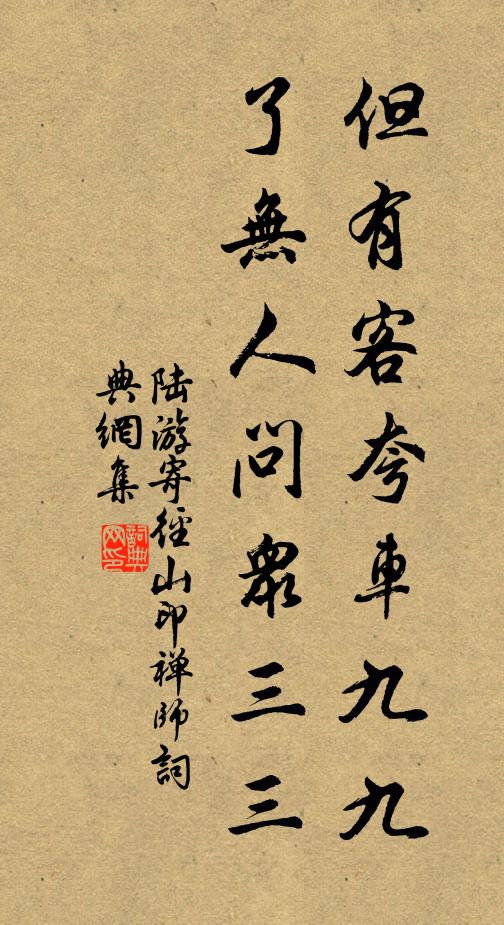 但有客夸車九九
了無人問衆三三
陸游寄徑山印禪師詞
典網集
詞典網印